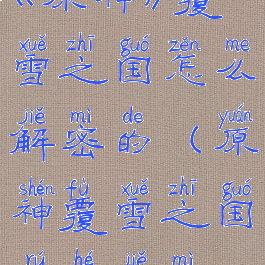 《原神》覆
xuě zhī guó zěn me
雪之国怎么
jiě mì de yuán
解密的（原
shén fù xuě zhī guó
神覆雪之国
rú hé jiě mì